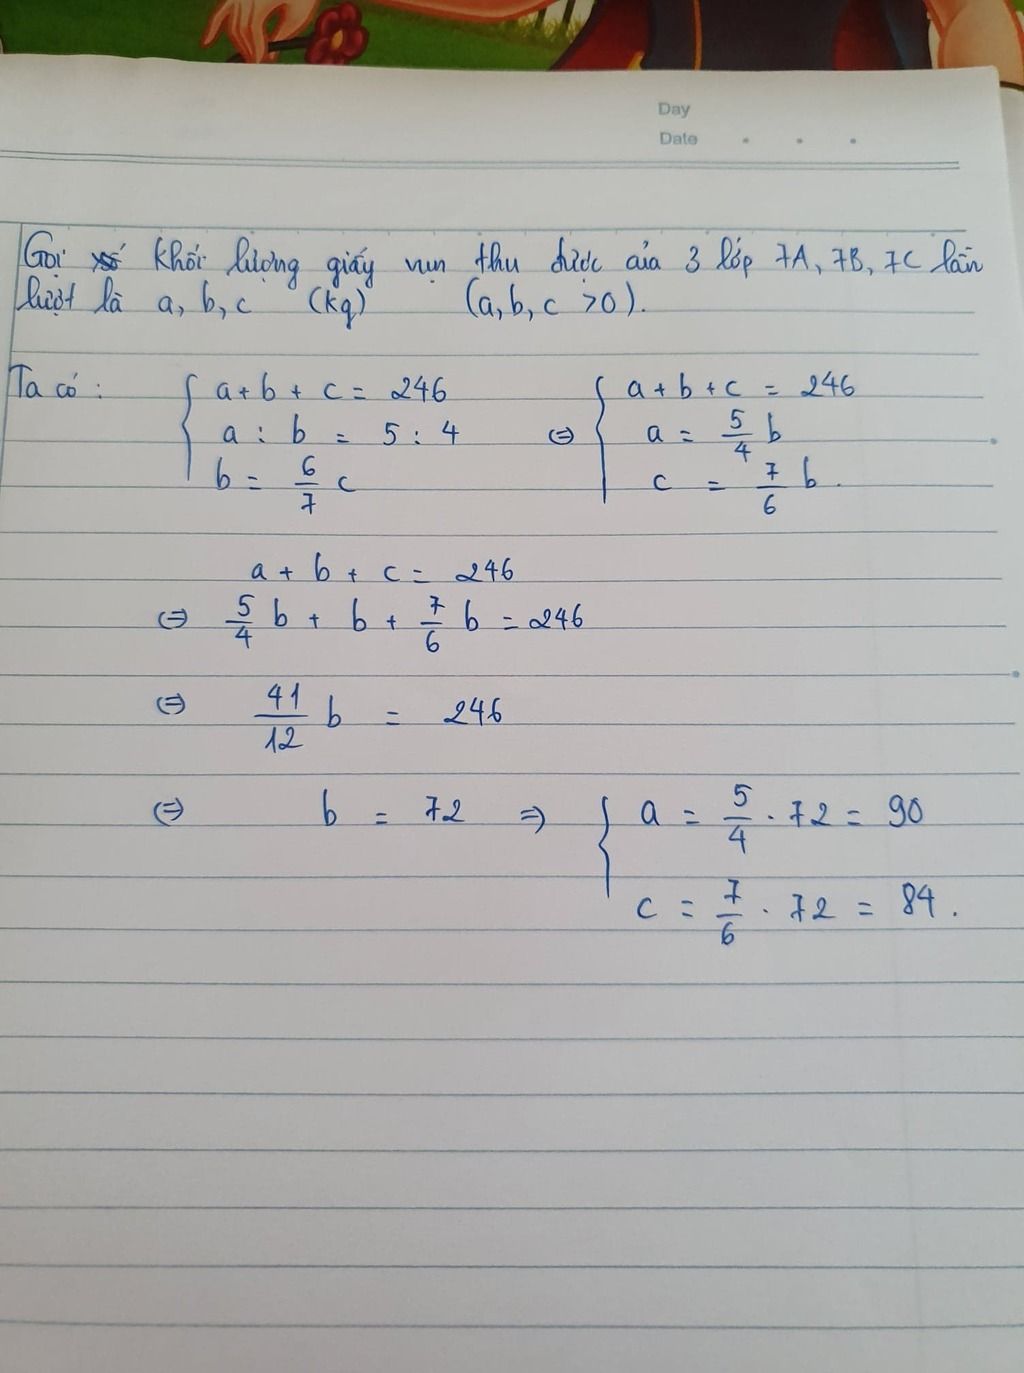 Day
Date
Gọi khối lượng giấy vụn thu được của 3 lớp 7A, 7B, 7C lần
lượt là a, b, c (kg) (a, b, c > 0).
Ta có : { a + b + c = 246 ⇔ { a + b + c = 246
a : b = 5 : 4 a = 5/4 b
b = 6/7 c c = 7/6 b.
a + b + c = 246
⇔ 5/4 b + b + 7/6 b = 246
⇔ 41/12 b = 246
⇔ b = 72 ⇒ { a = 5/4 . 72 = 90
c = 7/6 . 72 = 84.